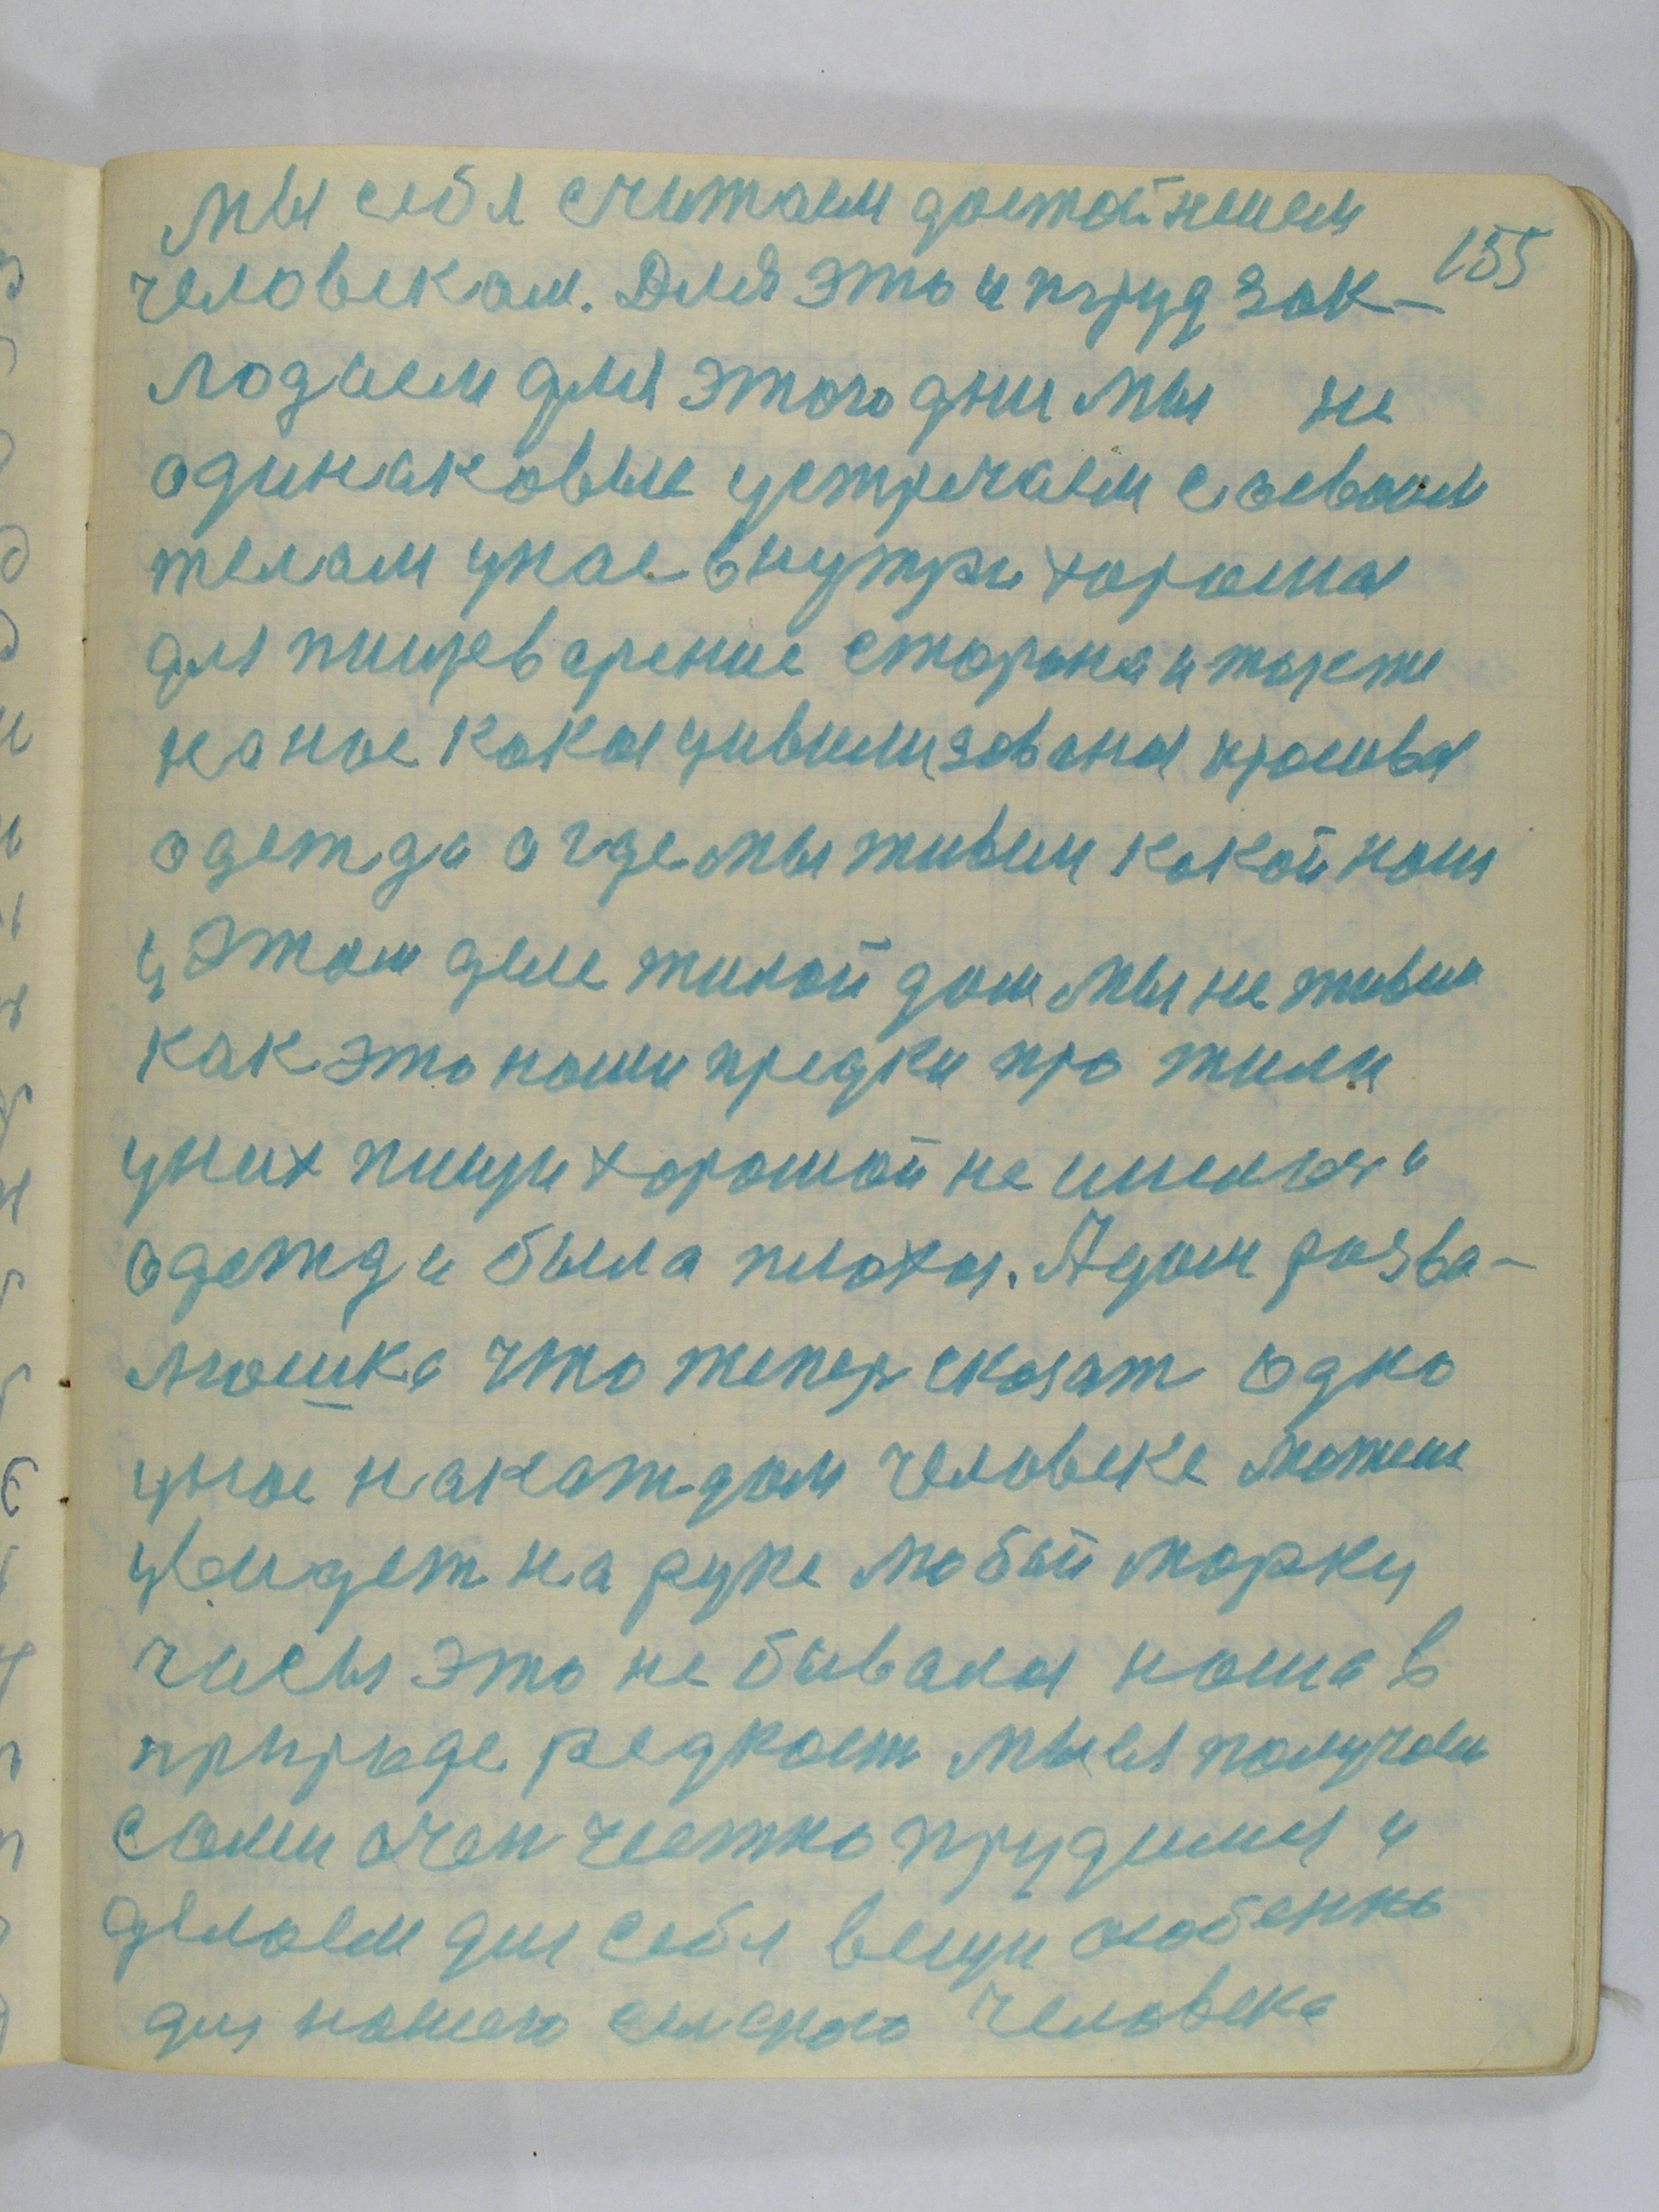 мы себя считаем достайнешем
155
человекам. Для это и труд зак-
лодаем для этого дни мы не
одинаковые устречаем с своем
телам унас внутри хорошая
для пищеварение сторона и также
на нас какая цивилизована красива
одежда а где мы живем какой наш
у этом деле жилой дом мы не живем
как это наши предки про жили
уних пищи хорошой не имелося и
одежда была плохая. А дом разва-
люшка что тепер сказат одно
унас на каждом человеке можем
увидет на руке любый марку
часы это не бывала наша в
прыроде редкост мы ея получаем
сами очен честно трудимся и
делаем для себя вещи особенно
для нашего сельского человека